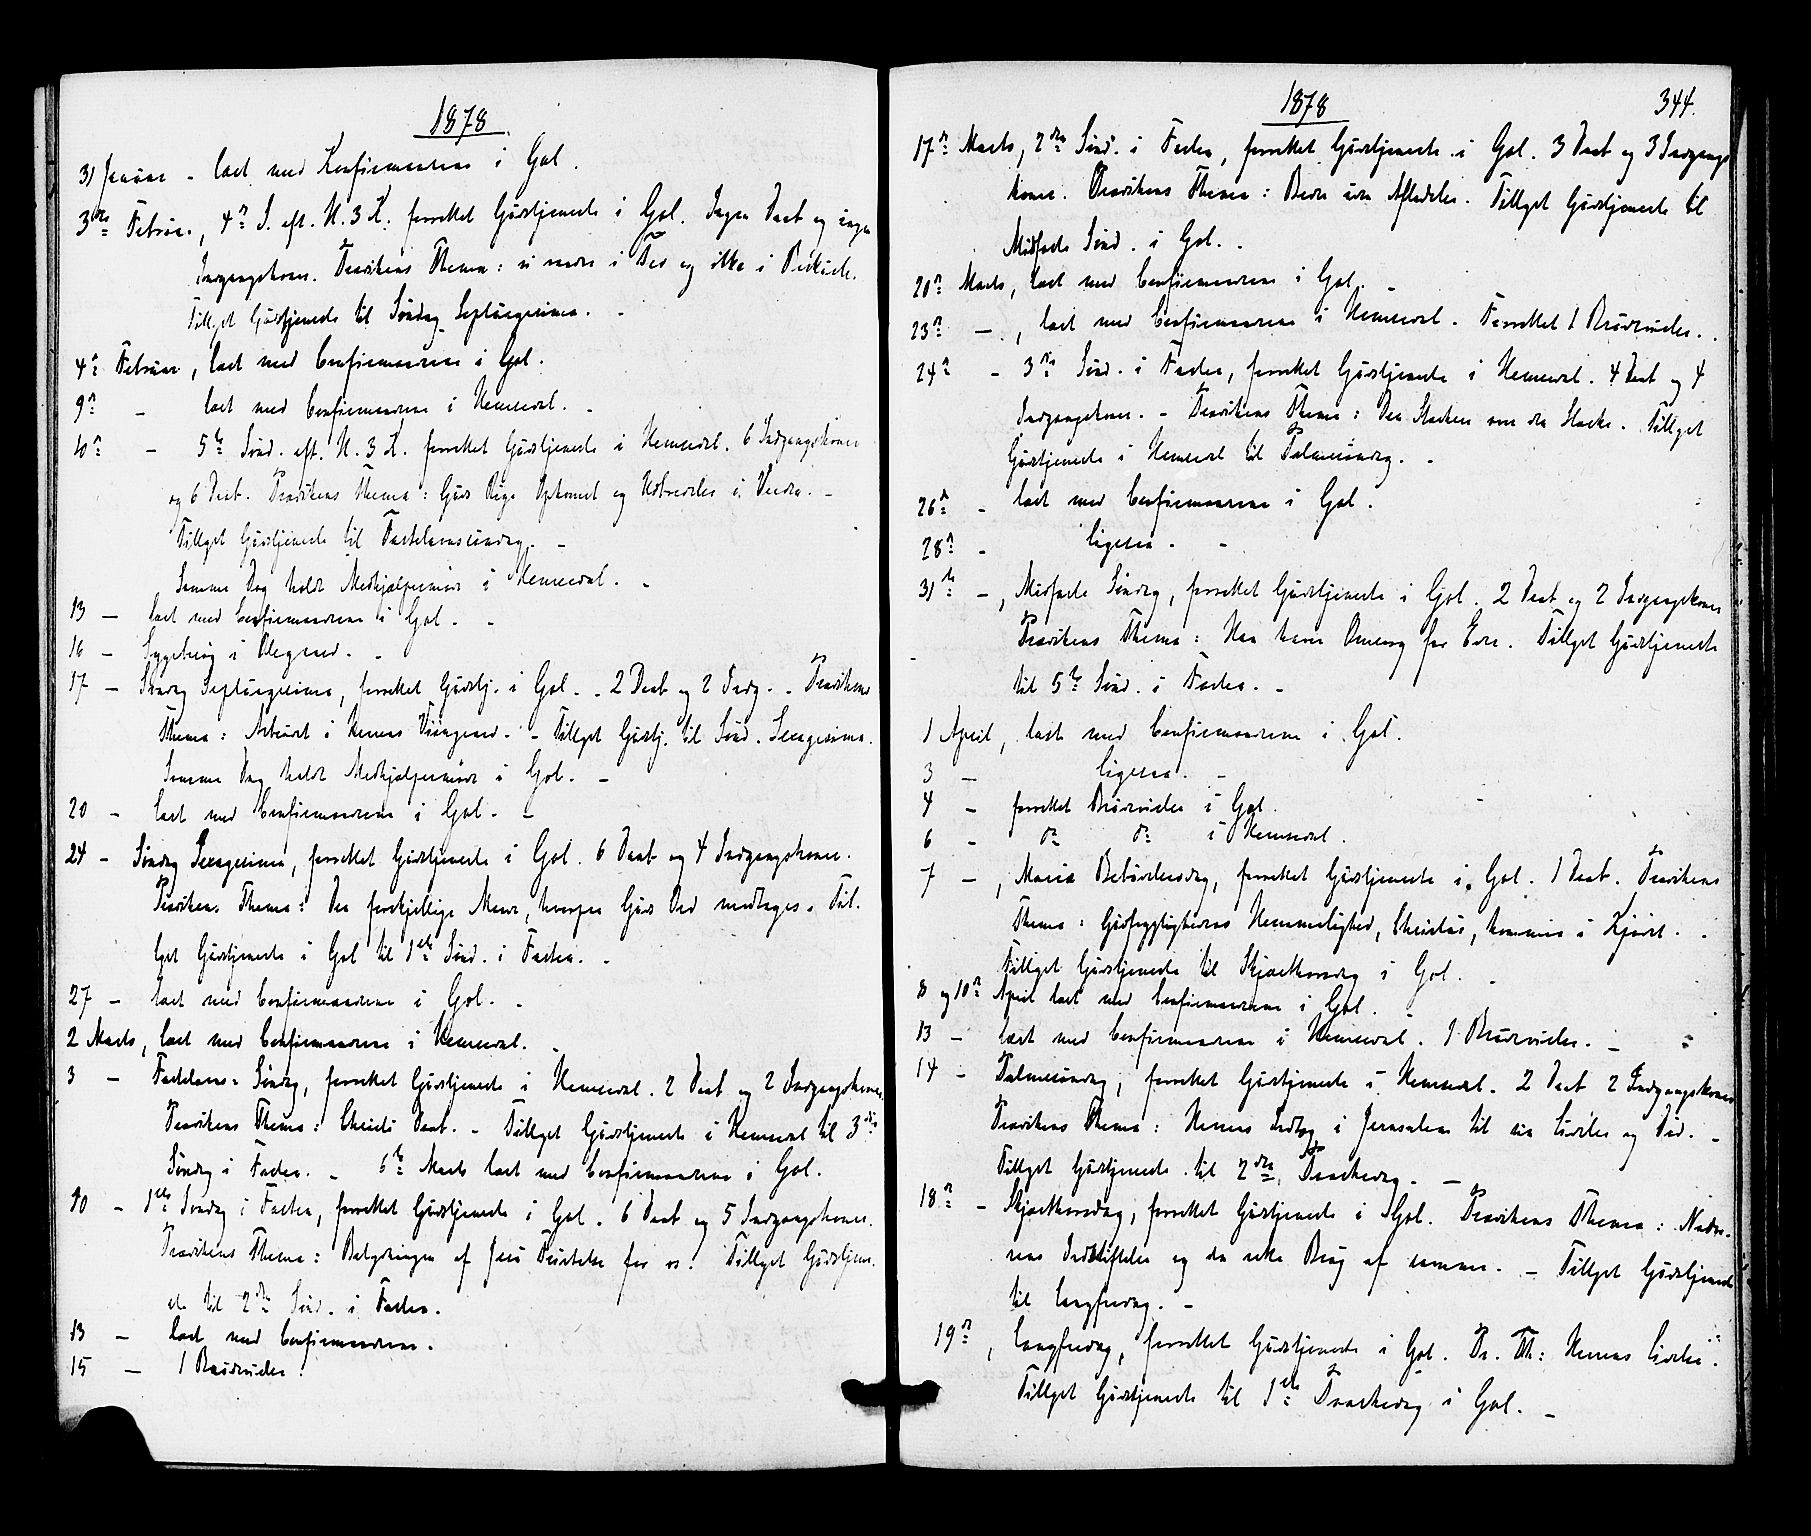 1878
31 Januar - læst med Konfirmanterne i Gol.
3die Februar, 4de S. eft. H. 3 K. forrettet Gudstjeneste i Gol. Ingen Daab og ingen
Indgangskoner. Prædikens Thema: vi vandre i Tro og ikke i Beskuelse.
Tillyst Gudstjeneste til Søndag Septuagesima. -
4de Februar, læst med Confirmanterne i Gol.
9de - læst med Confirmanterne i Hemsedal. -
10de - 5te Sønd. eft. H. 3 K. forrettet Gudstjeneste i Hemsedal. 6 Indgangskoner
og 6 Daab. Prædikens Thema: Guds Riges Opkomst og Udbredelse i Verden. -
Tillyst Gudstjeneste til Fastelavnssøndag. -
Samme Dag holdt Medhjælpermøde i Hemsedal. -
13 - læst med Confirmanterne i Gol. -
16 - Sygebesøg i -
17 - Søndag Septuagesima, forrettet Gudstj. i Gol. - 2 Daab og 2 Indg. - Prædikens
Thema: Arbeidet i Herrens Viingaard. - Tillyst Gudstj. til Sønd. Sexagesima.
Samme Dag holdt Medhjælpermøde i Gol. -
20 - læst med Confirmanterne i Gol. -
24 - Søndag Sexagesima, forrettet Gudstjeneste i Gol. 6 Daab og 4 Indgangskoner.
Prædikens Thema: Den forskjellige Maade, hvorpaa Guds Ord modtages. Til-
lyst Gudstjeneste i Gol til 1ste Sønd. i Fasten. -
27 - læst med Confirmanterne i Gol. -
2 Marts, læst med Confirmanterne i Hemsedal. -
3 - Fastelavns-Søndag, forrettet Gudstjeneste i Hemsedal. 2 Daab og 2 Indgangskoner.
Prædikens Thema: Christi Daab. - Tillyst Gudstjeneste i Hemsedal til 3die
Søndag i Fasten. - 6te Marts læst med Confirmanterne i Gol.
10 - 1ste Søndag i Fasten, forrettet Gudstjeneste i Gol. 6 Daab og 5 Indgangskoner.
Prædikens Thema: Betydningen af Jesu Fristelse for os. Tillyst Gudstjene-
ste til 2den Sønd. i Fasten.
13 - læst med Confirmanterne.
15 - 1 Brudevielse.
1878
344.
17de Marts, 2den Sønd. i Fasten, forrettet Gudstjeneste i Gol. 3 Daab og 3 Indgangs-
koner. Prædikens Thema: Beder uden Afladelse. Tillyst Gudstjeneste til
Midfaste Sønd. i Gol. -
20de Marts, læst med Confirmanterne i Gol. -
23de - , læst med Confirmanterne i Hemsedal. Forrettet 1 Brudevielse. -
24de - 3die Sønd. i Fasten, forrettet Gudstjeneste i Hemsedal. 4 Daab og 4
Indgangskoner. - Prædikens Thema: Den Stærkere over den Stærke. Tillyst
Gudstjeneste i Hemsedal til Palmesøndag. -
26de - læst med Confirmanterne i Gol.
28de - ligesaa. -
31te - , Midfaste Søndag, forrettet Gudstjeneste i Gol. 2 Daab og 2 Indgangskoner
Prædikens Thema: Han haver Omsorg for Eder. Tillyst Gudstjeneste
til 5te Sønd. i Fasten. -
1 April, læst med Confirmanterne i Gol.
3 - ligesaa. -
4 - forrettet Brudevielse i Gol.
6 - do do i Hemsedal.
7 - , Mariæ Bebudelsesdag, forrettet Gudstjeneste i Gol. 1 Daab. Prædikens
Thema: Gudfrygtighedens Hemmelighed, Christus, kommen i Kjødet. -
Tillyst Gudstjeneste til Skjærthorsdag i Gol. -
8 og 10de April læst med Confirmanterne i Gol.
13 - læst med Confirmanterne i Hemsedal. 1 Brudevielse. -
14 - Palmesøndag, forrettet Gudstjeneste i Hemsedal. 2 Daab 2 Indgangskoner
Prædikens Thema: Herrens Indtog i Jerusalem til sin Lidelse og Død. -
Tillyst Gudstjeneste til 2den Paaskedag. -
18de - Skjærthorsdag, forrettet Gudstjeneste i Gol. Prædikens Thema: Nadve-
rens Indstiftelse og den rette Brug af samme. - Tillyst Gudstjeneste
til Langfredag. -
19de, Langfredag, forrettet Gudstjeneste i Gol. Pr. Th: Herrens Lidelse.
Tillyst Gudstjeneste til 1ste Paaskedag i Gol. -